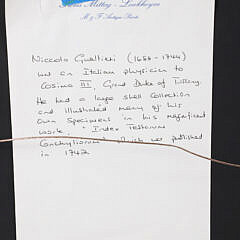 Niccolo Gualtieri (1688 - 1744)
was an Italian physician to
Cosimo III Grand Duke of Tuscany.
He had a large shell collection
and illustrated many of his
own specimens in his magnificent
work "Index Testarum
Conchyliorum" which was published
in 1742